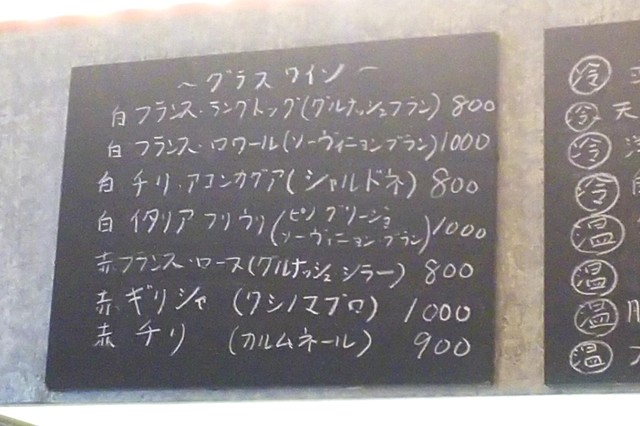 ～グラスワイン～
白 フランス・ラングドッグ(グルナッシュブラン) 800
白 フランス・ロワール(ソーヴィニョンブラン) 1000
白 チリ・アコンカグア(シャルドネ) 800
白 イタリア フリウリ(ピノ グリージョ ソーヴィニョン・ブラン) 1000
赤 フランス・ローヌ(グルナッシュ シラー) 800
赤 ギリシャ (クシノマブロ) 1000
赤 チリ (カルムネール) 900
冷
冷 天
冷
冷
温
温
温
温